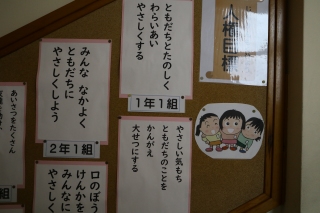 人権目標
ともだちとたのしく
わらいあい
やさしくする
1年1組
みんな なかよく
ともだちに
やさしくしよう
2年1組
やさしい気もち
ともだちのことを
かんがえ
大せつにする
あいさつをたくさん
口のぼう
けんかを
みんなに
やさしく
組